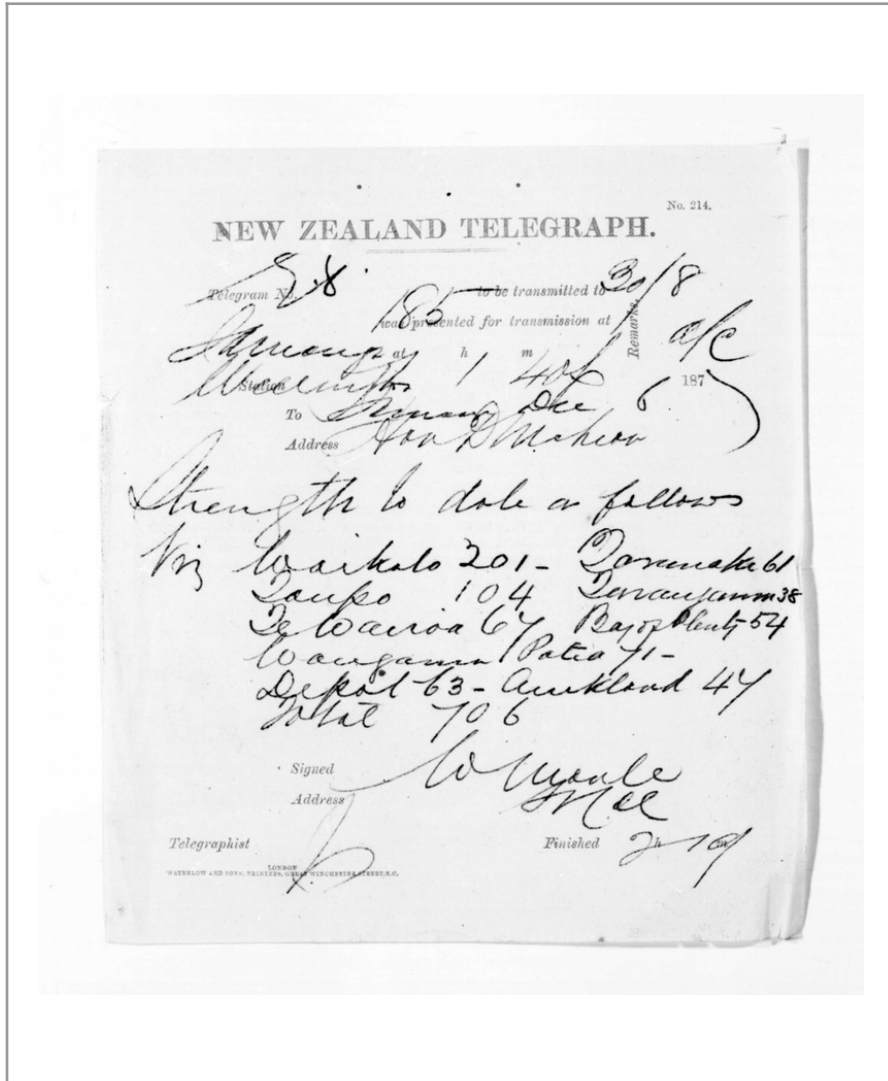 No. 214.
NEW ZEALAND TELEGRAPH.
Telegram No. to be transmitted to 30/8
185 was presented for transmission at Remarks.
at h m a/c
Station 1 40 187
To Dec 6
Address Hon D McLean
Strength to date as follows
Viz Waikato 201 - Taranaki 61
Taupo 104 Tauranga 38
Te Wairoa 67 Bay of Plenty 54
Wanganui Patea 71 -
Depot 63 - Auckland 47
Total 706
Signed W Moule
Address
Telegraphist Finished 2 h
LONDON
WATERLOW AND SONS, PRINTERS, GREAT WINCHESTER STREET, E.C.